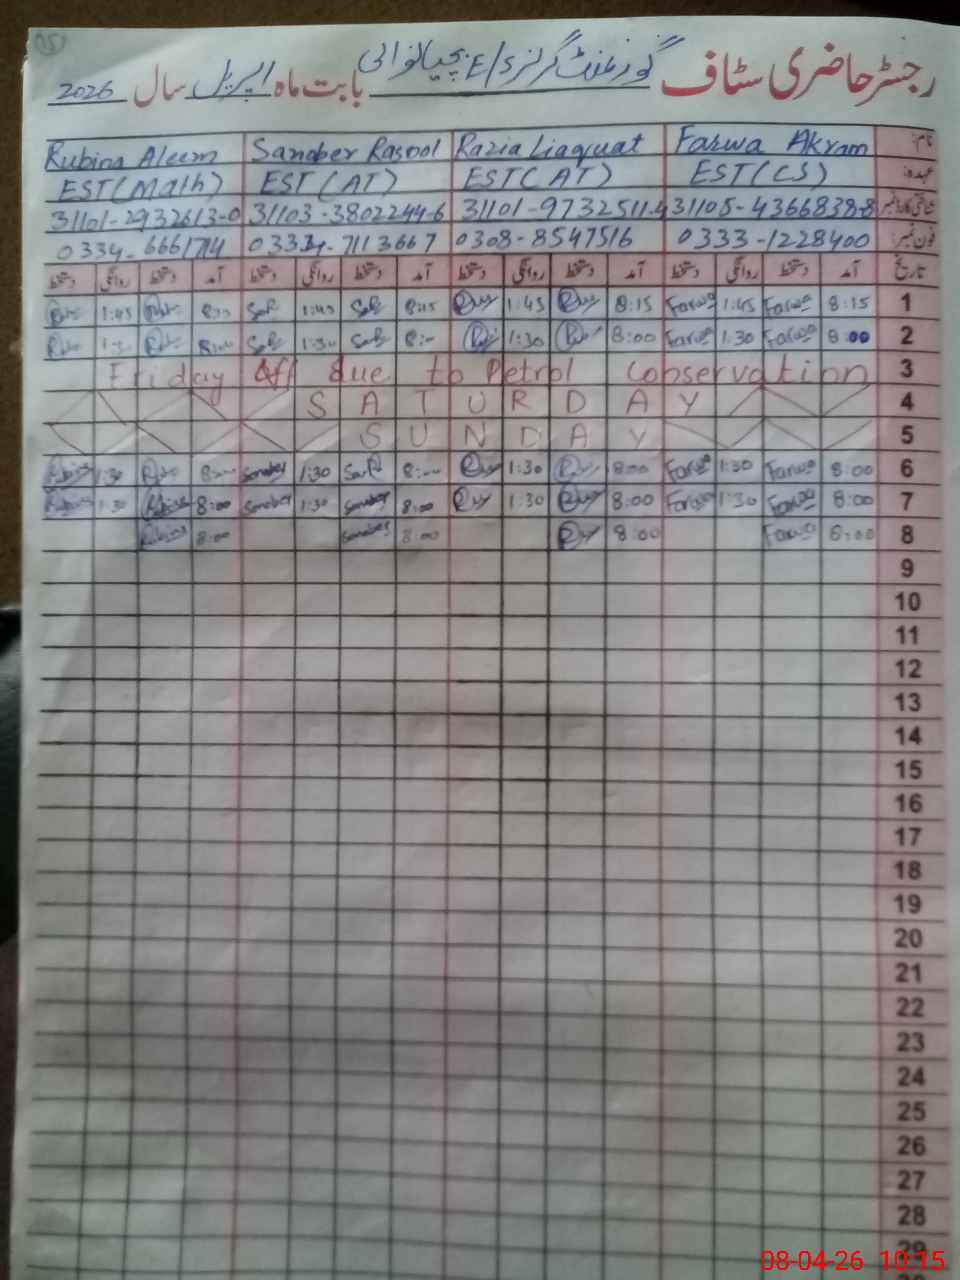 15
رجسٹر حاضری سٹاف گورنمنٹ گرلز E/S بابت ماہ اپریل سال 2026
نام: Farwa Akram Razia Liaquat Sanober Rasool Rubina Aleem
عہدہ: EST(CS) EST(AT) EST(AT) EST(Math)
شناختی کارڈ نمبر 31105-4366838-8 31101-9732511-4 31103-3802244-6 31101-2932613-0
فون نمبر: 0333-1228400 0308-8547516 0334-7113667 0334-6661714
تاریخ آمد دستخط روانگی دستخط آمد دستخط روانگی دستخط آمد دستخط روانگی دستخط آمد دستخط روانگی دستخط
1 8:15 Farwa 1:45 Farwa 8:15 1:45 8:15 1:45 1:45
2 8:00 Farwa 1:30 Farwa 8:00 1:30 8:00 1:30 8:00 1:30
3 Friday off due to Petrol Conservation
4 SATURDAY
5 SUNDAY
6 8:00 Farwa 1:30 Farwa 8:00 1:30 8:00 1:30 Sanober 8:00 1:30 Rubina
7 8:00 Farwa 1:30 Farwa 8:00 1:30 8:00 Sanober 1:30 Sanober 8:00 Rubina 1:30 Rubina
8 8:00 Farwa 8:00 8:00 Sanober 8:00 Rubina
9
10
11
12
13
14
15
16
17
18
19
20
21
22
23
24
25
26
27
28
29
08-04-26 10:15